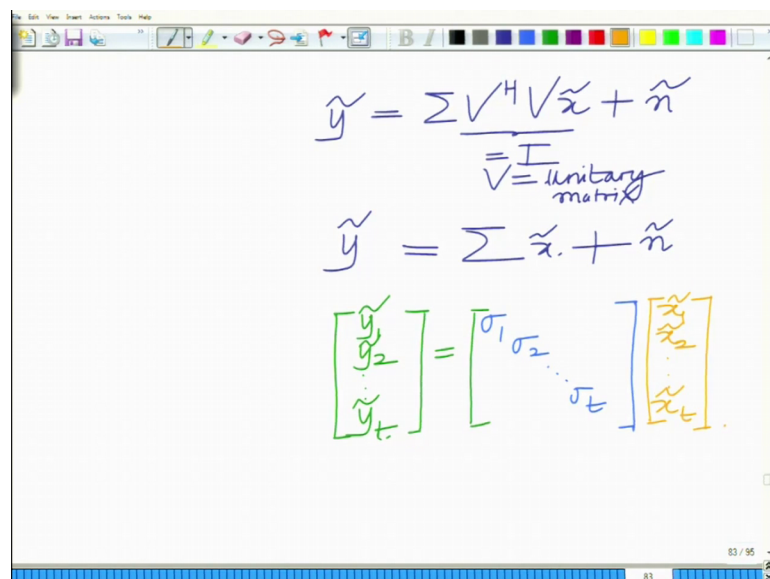 File Edit View Insert Actions Tools Help
B I
ỹ = Σ V^H V x̃ + ñ
= I
V = unitary
matrix
ỹ = Σ x̃ + ñ
[ỹ₁ ỹ₂ ⋮ ỹₜ] = [σ₁ σ₂ ⋱ σₜ] [x̃₁ x̃₂ ⋮ x̃ₜ]
83 / 95
83